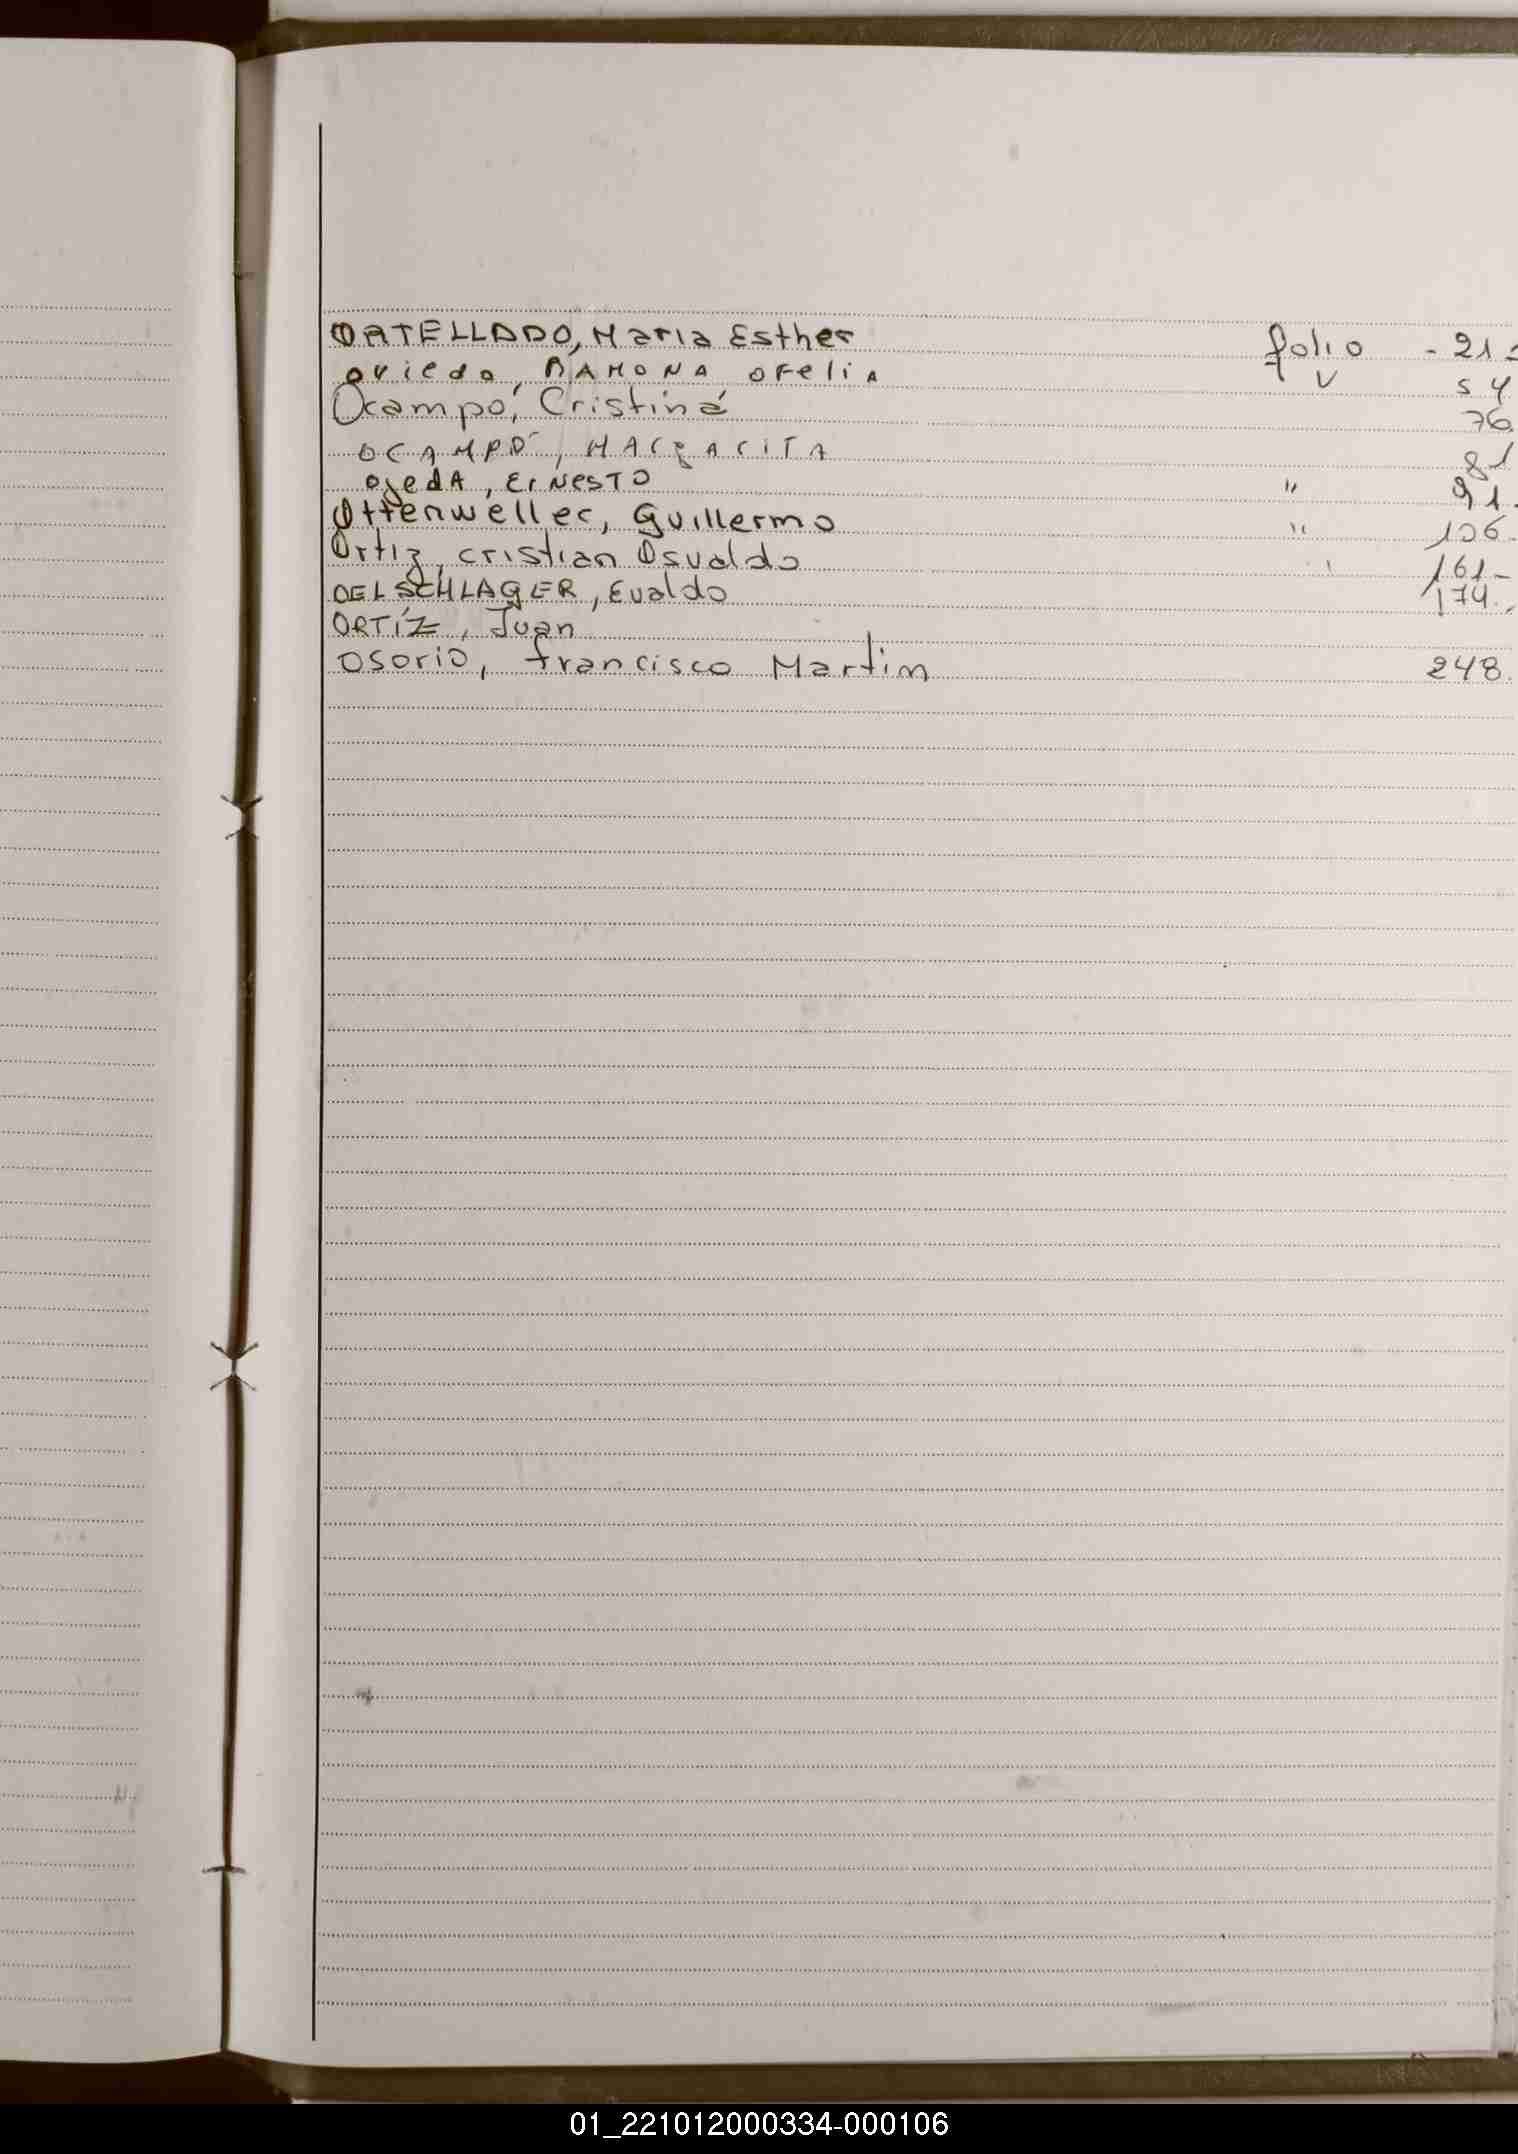 ORTELLADO, Maria Esther folio - 21 -
oviedo, RAMONA OFeliA v 54
Ocampo, Cristina 76.
OCAMPO, MARGARITA 81
OjedA, ErNesTO " 91.
Ottenweller, Guillermo " 106.
Ortiz, cristian Osvaldo ' 161-
OELSCHLAGER, Evaldo 174.
ORTÍZ, Juan
Osorio, francisco Martin 248.
01_221012000334-000106